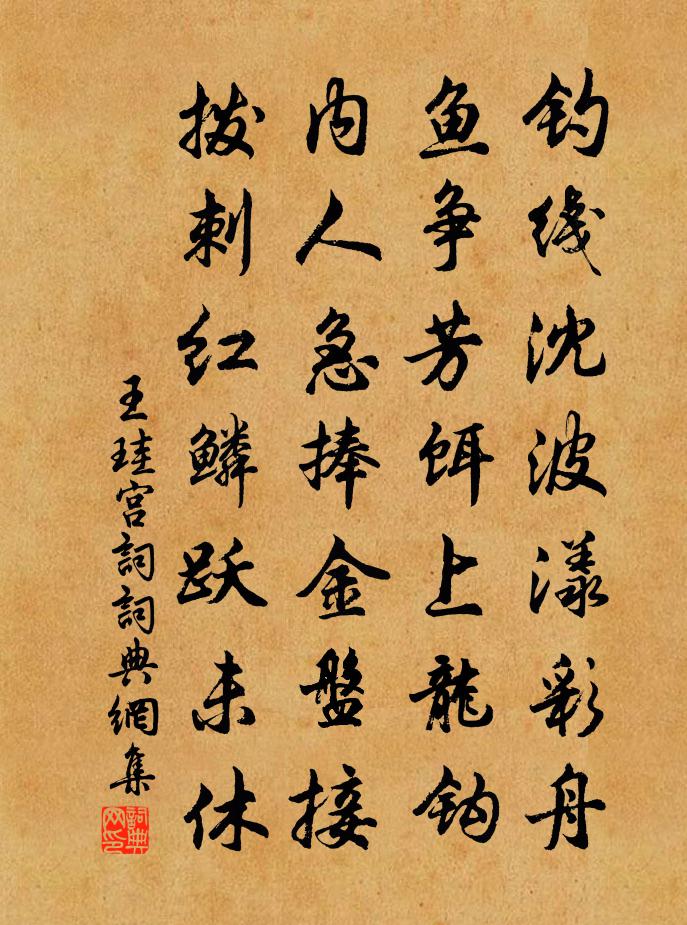 钓线沈波漾彩舟
鱼争芳饵上龍钩
内人急捧金盤接
拨刺红鳞跃未休
王珪宫詞詞典網集
詞典网印